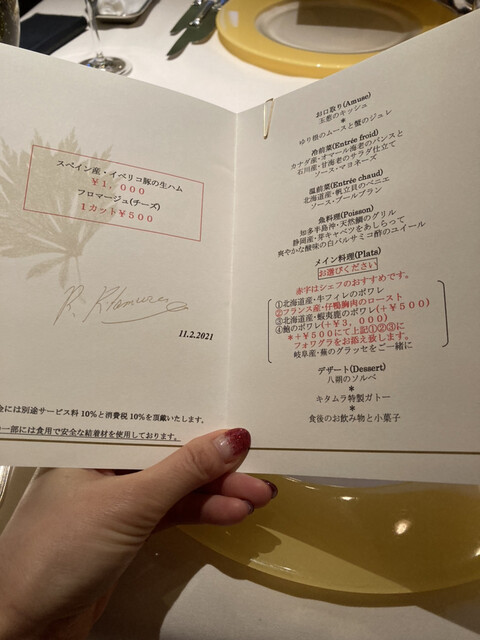 スペイン産・イベリコ豚の生ハム
¥1,000
フロマージュ(チーズ)
1カット¥500
R. Kitamura
11.2.2021
金には別途サービス料10%と消費税10%を頂戴いたします。
一部には食用で安全な結着材を使用しております。
お口取り(Amuse)
玉葱のキッシュ
*
ゆり根のムースと蟹のジュレ
冷前菜(Entrée froid)
カナダ産・オマール海老のバンスと
石川産・甘海老のサラダ仕立て
ソース・マヨネーズ
温前菜(Entrée chaud)
北海道産・帆立貝のベニエ
ソース・ブールブラン
魚料理(Poisson)
知多半島沖・天然鯛のグリル
静岡産・芽キャベツをあしらって
爽やかな酸味の白バルサミコ酢のエイール
メイン料理(Plats)
お選びください
赤字はシェフのおすすめです。
①北海道産・牛フィレのポワレ
②フランス産・仔鴨胸肉のロースト
③北海道産・蝦夷鹿のポワレ(+¥500)
④鮑のポワレ(+¥3,000)
*+¥500にて上記①②③に
フォワグラをお添え致します。
岐阜産・蕪のグラッセをご一緒に
デザート(Dessert)
八朔のソルベ
*
キタムラ特製ガトー
*
食後のお飲み物と小菓子